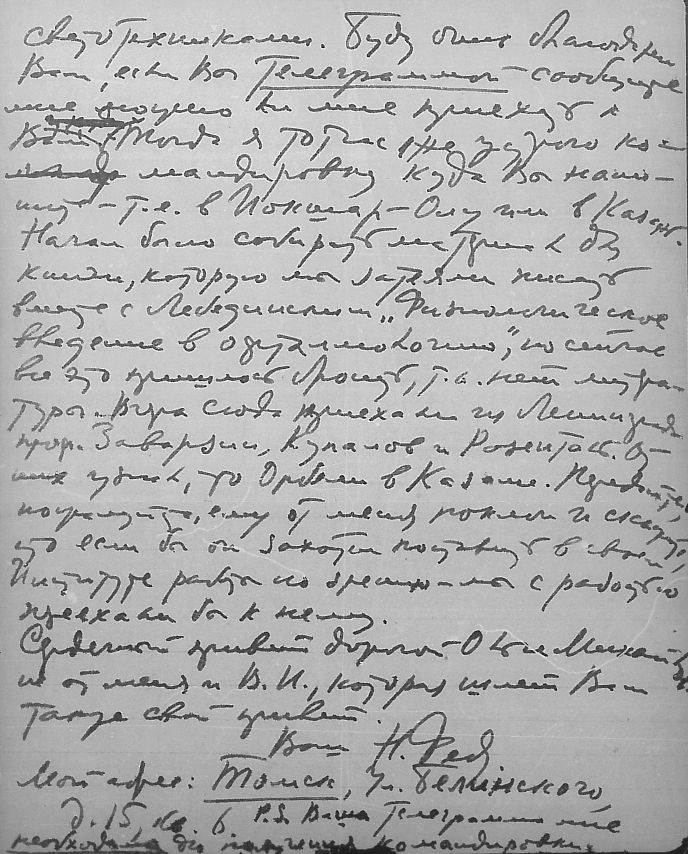 светотехниками. Буду очень благодарен
Вам, если Вы Телеграммой сообщите
мне нужно ли мне приехать к
Вам. Тогда я тотчас же устрою ко-
мандировку куда Вы напи-
шите – т.е. в Йошкар-Олу или в Казань.
Начал было собирать материал для
книги, которую мы затеяли писать
вместе с Лебединским „Физиологическое
введение в офтальмологию", но сейчас
все это пришлось бросить, т.к. нет литера-
туры. Вчера сюда приехали из Ленинграда
проф. Заварзин, Купалов и Розенталь. От
них узнал, что Орбели в Казани. Передайте,
пожалуйста, ему от меня поклон и скажите,
что если бы он захотел поставить в своем
Институте работы по зрению мы с радостью
приехали бы к нему.
Сердечный привет дорогой Ольге Михайловне
от меня и В.И., которая шлет Вам
также свой привет.
Ваш Н. Фед
Мой адрес: Томск, ул. Белинского,
д. 15, кв. 6 P.S. Ваша Телеграмма мне
необходима для получения командировки.